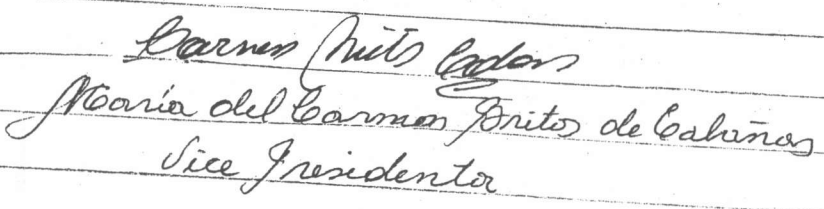 Carmen Brito
María del Carmen Brito de Cabañas
Vice Presidenta